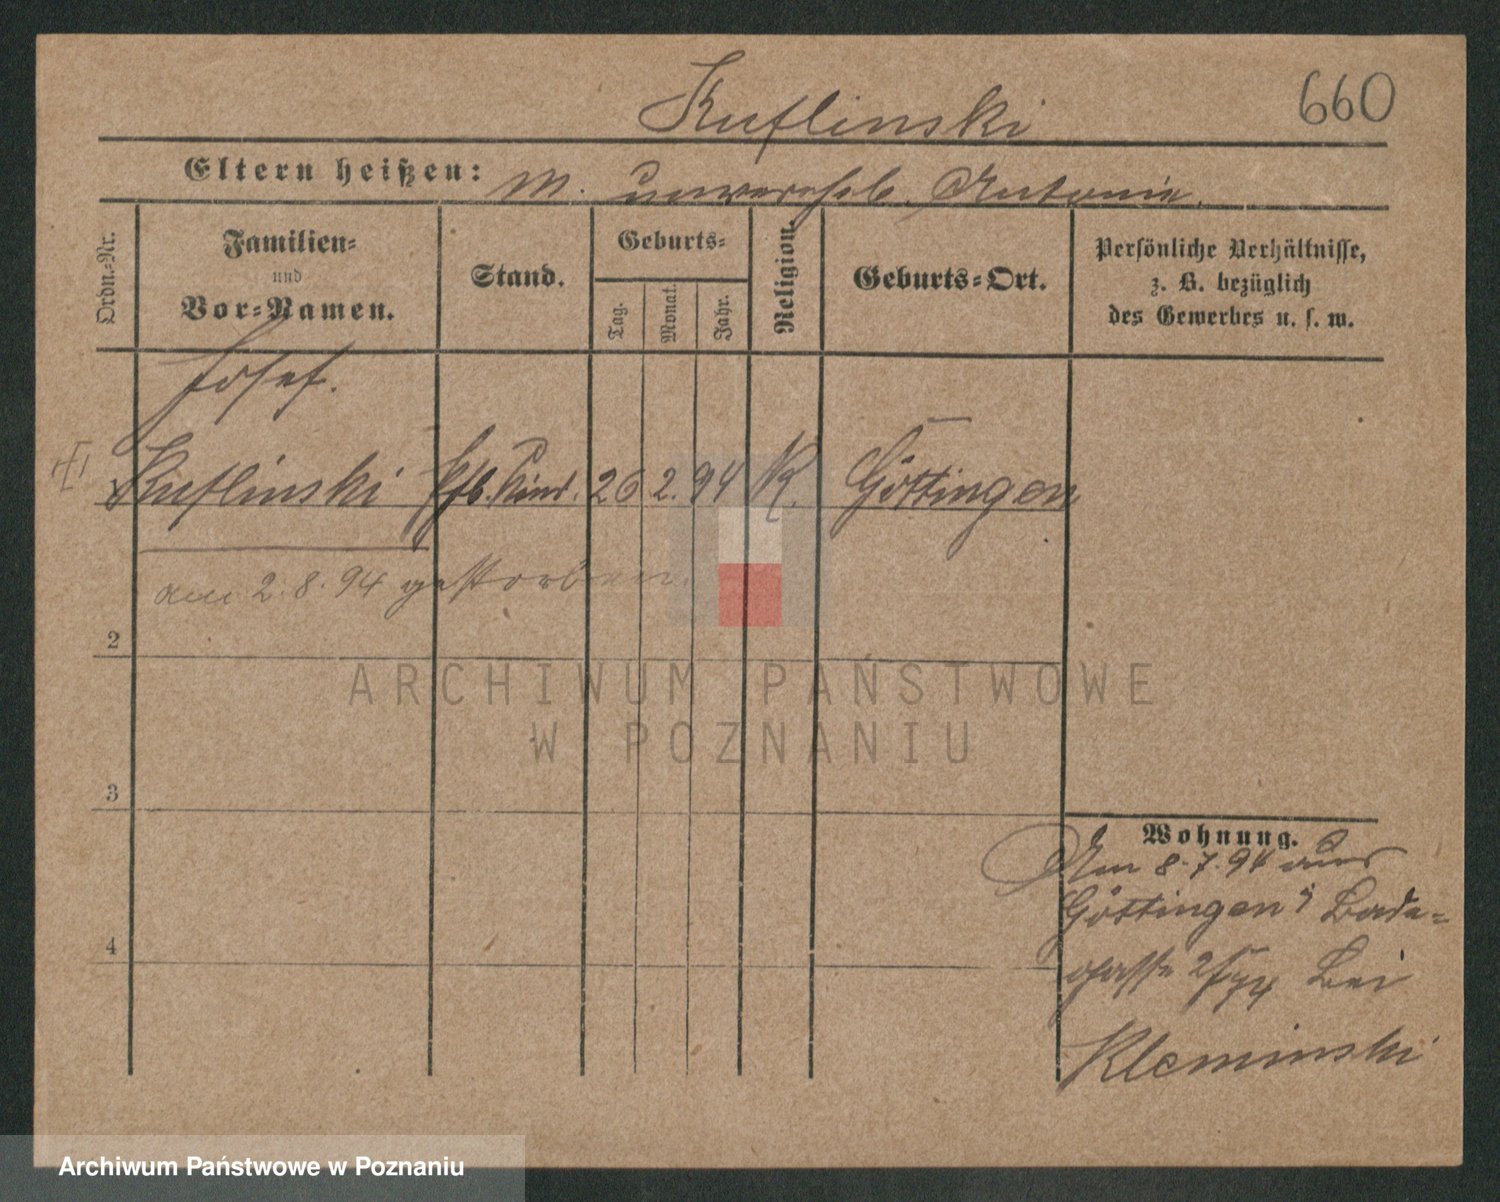 Kuflinski
660
Eltern heißen: M. unvereh. Antonie.
Ordn.-Nr.
Familien-
und
Vor-Namen.
Stand.
Geburts-
Tag.
Monat.
Jahr.
Religion.
Geburts-Ort.
Persönliche Verhältnisse,
z. B. bezüglich
des Gewerbes u. s. w.
Josef.
Kuflinski Pflb. Kind. 26 2. 94 K. Göttingen
am 2.8.94 gestorben.
2
3
4
Wohnung.
Am 8.7.94 aus
Göttingen Bade-
gasse bei
Kleminski
ARCHIWUM PAŃSTWOWE
W POZNANIU
Archiwum Państwowe w Poznaniu